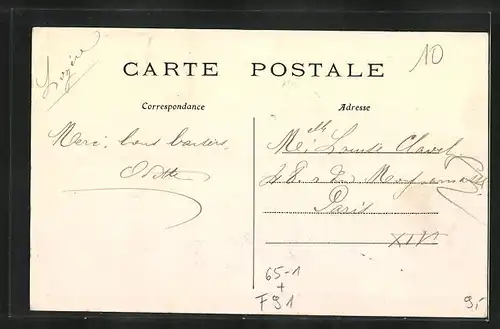 Lozère
10
CARTE POSTALE
Correspondance
Adresse
Merci, bons baisers.
Odette
Melle Louise Clavel
48 r
Paris
XIV
65-1
+
F91
9,-